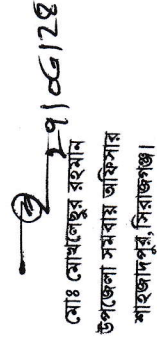 মোঃ মোখলেছুর রহমান
উপজেলা সমবায় অফিসার
শাহজাদপুর,সিরাজগঞ্জ।